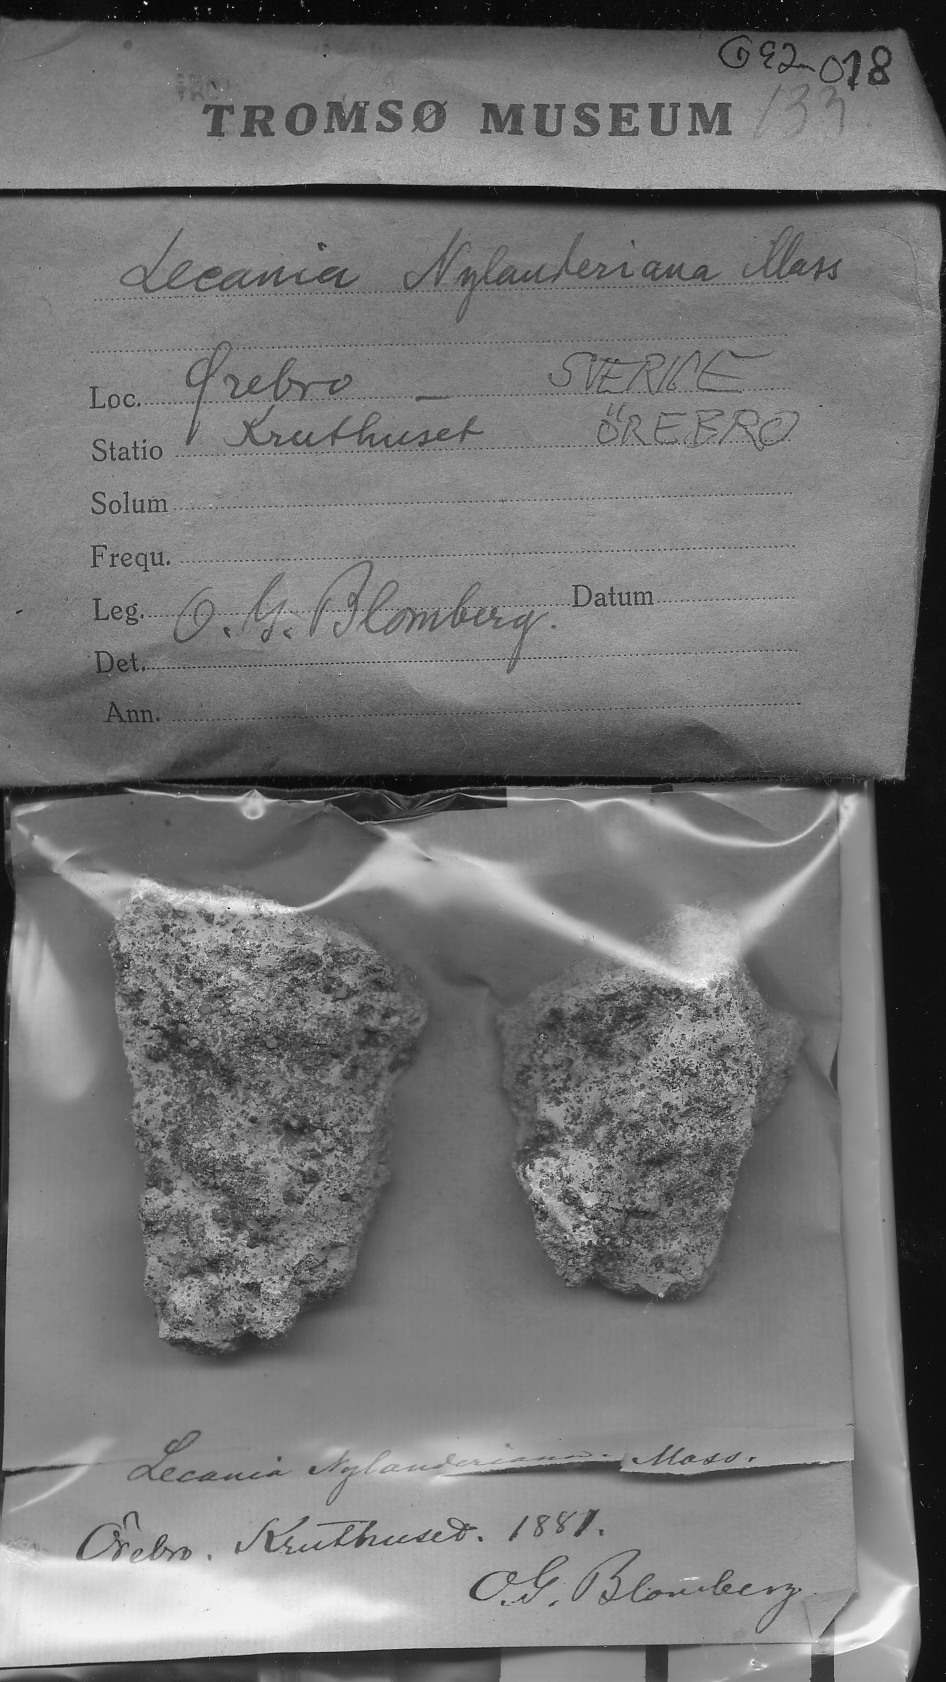 G92-018
TROMSØ MUSEUM 133
Lecania Nylanderiana Mass
Loc. Ørebro – SVERIGE
Statio Kruthuset ÖREBRO
Solum
Frequ.
Leg. O. G. Blomberg. Datum
Det.
Ann.
Lecania Nylanderiana. Mass.
Örebro. Kruthuset. 1881.
O.G. Blomberg